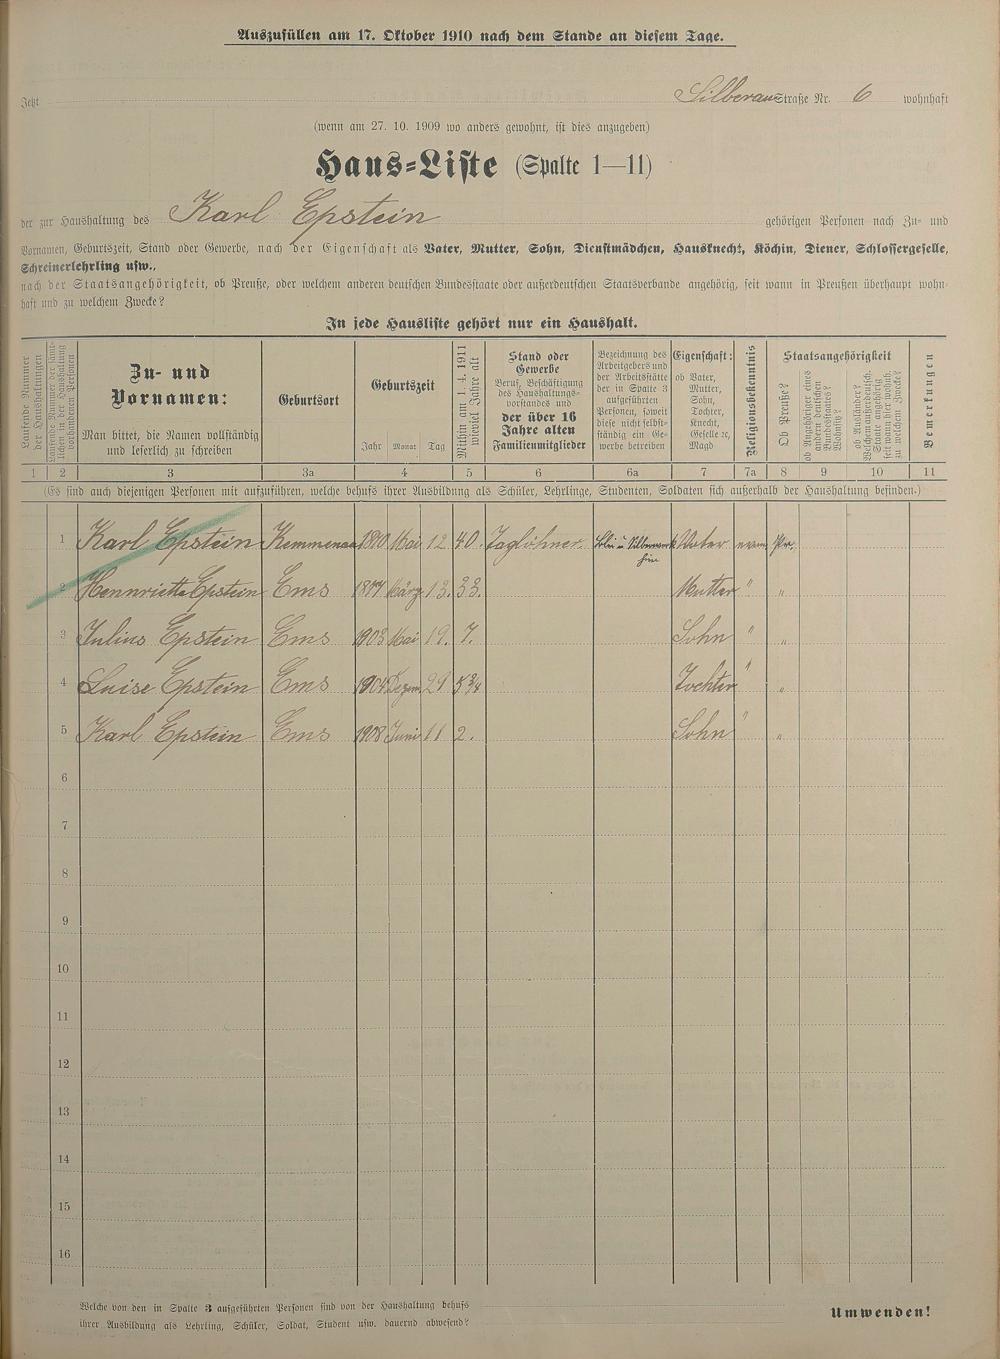 Auszufüllen am 17. Oktober 1910 nach dem Stande an diesem Tage.
Jetzt Silberau Straße Nr. 6 wohnhaft
(wenn am 27. 10. 1909 wo anders gewohnt, ist dies anzugeben)
Haus-Liste (Spalte 1—11)
der zur Haushaltung des Karl Epstein gehörigen Personen nach Zu- und
Vornamen, Geburtszeit, Stand oder Gewerbe, nach der Eigenschaft als Vater, Mutter, Sohn, Dienstmädchen, Hausknecht, Köchin, Diener, Schlossergeselle,
Schreinerlehrling usw.,
nach der Staatsangehörigkeit, ob Preuße, oder welchem anderen deutschen Bundesstaate oder außerdeutschen Staatsverbande angehörig, seit wann in Preußen überhaupt wohn-
haft und zu welchem Zwecke?
In jede Hausliste gehört nur ein Haushalt.
Laufende Nummer der Haushaltungen
Laufende Nummer der sämtlichen in der Haushaltung vorhandenen Personen
Zu- und
Vornamen:
Man bittet, die Namen vollständig
und leserlich zu schreiben
Geburtsort
Geburtszeit
Jahr Monat Tag
Mithin am 1. 4. 1911
wieviel Jahre alt
Stand oder
Gewerbe
Beruf, Beschäftigung
des Haushaltungs-
vorstandes und
der über 16
Jahre alten
Familienmitglieder
Bezeichnung des
Arbeitgebers und
der Arbeitsstätte
der in Spalte 3
aufgeführten
Personen, soweit
diese nicht selbst-
ständig ein Ge-
werbe betreiben
Eigenschaft:
ob Vater,
Mutter,
Sohn,
Tochter,
Knecht,
Geselle ec,
Magd
Religionsbekenntnis
Staatsangehörigkeit
Ob Preuße?
ob Angehöriger eines
andern deutschen
Bundesstaates?
Wohnsitz?
ob Ausländer?
Welchem außerdeutsch.
Staate angehörig
seit wann hier wohnh.
zu welchem Zwecke?
Bemerkungen
1 2 3 3a 4 5 6 6a 7 7a 8 9 10 11
(Es sind auch diejenigen Personen mit aufzuführen, welche behufs ihrer Ausbildung als Schüler, Lehrlinge, Studenten, Soldaten sich außerhalb der Haushaltung befinden.)
1 Karl Epstein Kemmenau 1870 Mai 12 40. Taglöhner Blei u Silberwerk Vater evan Pr.
2 Hennriette Epstein Ems 1877 März 13. 33. Mutter " "
3 Julius Epstein Ems 1903 Mai 19. 7. Sohn " "
4 Luise Epstein Ems 1904 Dezem 21 5 3/4 Tochter " "
5 Karl Epstein Ems 1908 Juni 11 2. Sohn " "
6
7
8
9
10
11
12
13
14
15
16
Welche von den in Spalte 3 aufgeführten Personen sind von der Haushaltung behufs
ihrer Ausbildung als Lehrling, Schüler, Soldat, Student usw. dauernd abwesend?
Umwenden!